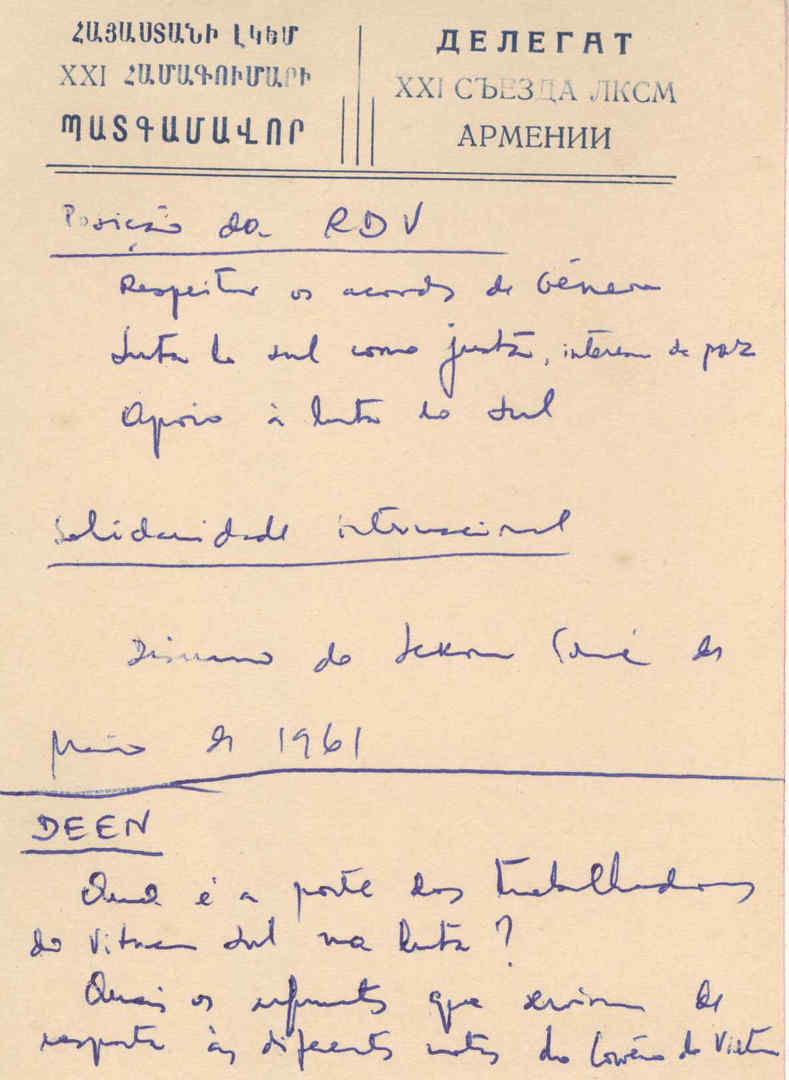 ՀԱՅԱՍՏԱՆԻ ԼԿԵՄ
XXI ՀԱՄԱԳՈՒՄԱՐԻ
ՊԱՏԳԱՄԱՎՈՐ
ДЕЛЕГАТ
XXI СЪЕЗДА ЛКСМ
АРМЕНИИ
Posição da RDV
Respeitar os acordos de Génève
Luta do sul como justa, interesse da paz
Apoio à luta do sul
Solidariedade internacional
Discurso do Sekou Touré de
Maio de 1961
DEEN
Qual é a parte dos trabalhadores
do Vitnam Sul na luta?
Quais os que de
resposta às diferentes notas do Govêrno do Vietn